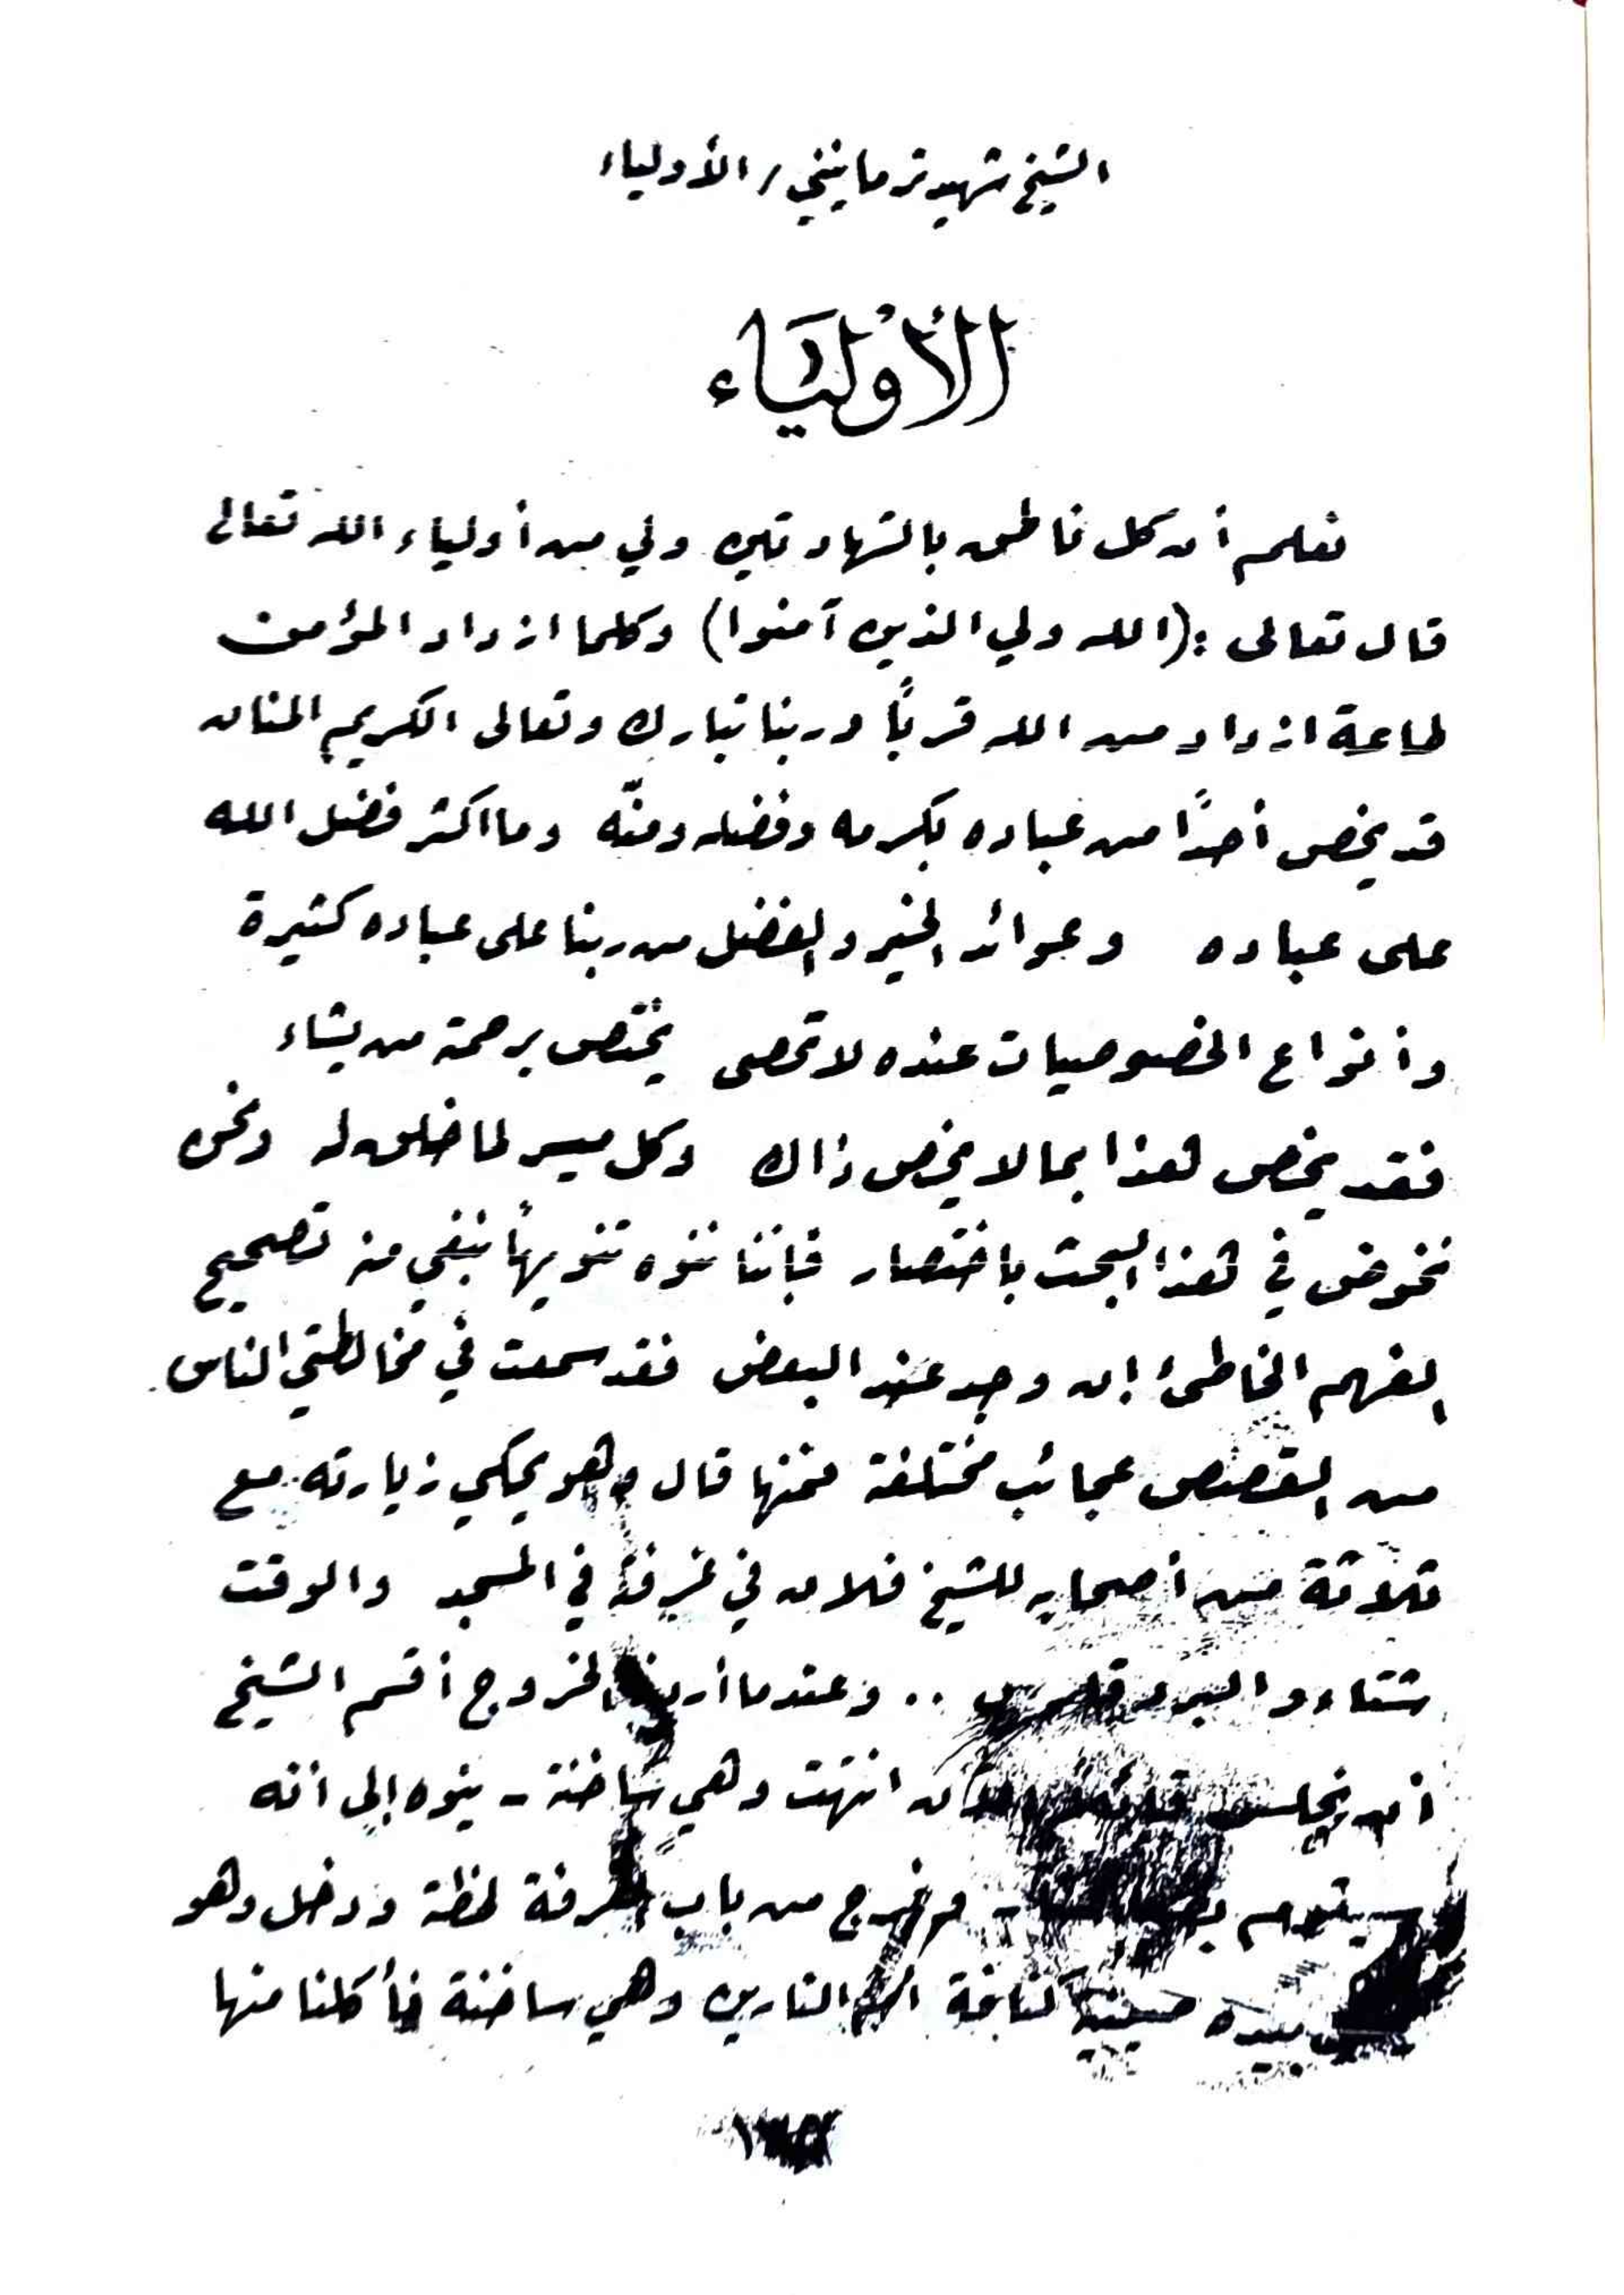 الشيخ شهيد ترمانيني / الأولياء
الأوْليَاء
نعلم أن كل ناطق بالشهادتين ولي من أولياء الله تعالى
قال تعالى : (الله ولي الذين آمنوا) وكلما ازداد المؤمن
طاعة ازداد من الله قربًا وربنا تبارك وتعالى الكريم المنان
قد يخص أحدًا من عباده بكرمه وفضله ومنّه وما اكثر فضل الله
على عباده وعوائد الخير والفضل من ربنا على عباده كثيرة
وأنواع الخصوصيات عنده لا تحصى يختص برحمته من يشاء
فقد يخص هذا بما لا يخص ذاك وكل ميسر لما خلق له ونحن
نخوض في هذا البحث باختصار فإننا ننوه تنويهاً ينبغي منه تصحيح
الفهم الخاطئ إن وجد عند البعض فقد سمعت في مخالطتي الناس
من القصص عجائب مختلفة فمنها قال وهو يحكي زيارته مع
ثلاثة من أصحابه للشيخ فلان في غرفة في المسجد والوقت
شتاء والبرد .. وعندما أردنا الخروج أقسم الشيخ
أن نجلس انتهت وهي ساخنة - ينوه إلى أنه
سيقوم - وخرج من باب الغرفة لحظة ودخل وهو
بيده صينية كنافة النارين وهي ساخنة فأكلنا منها